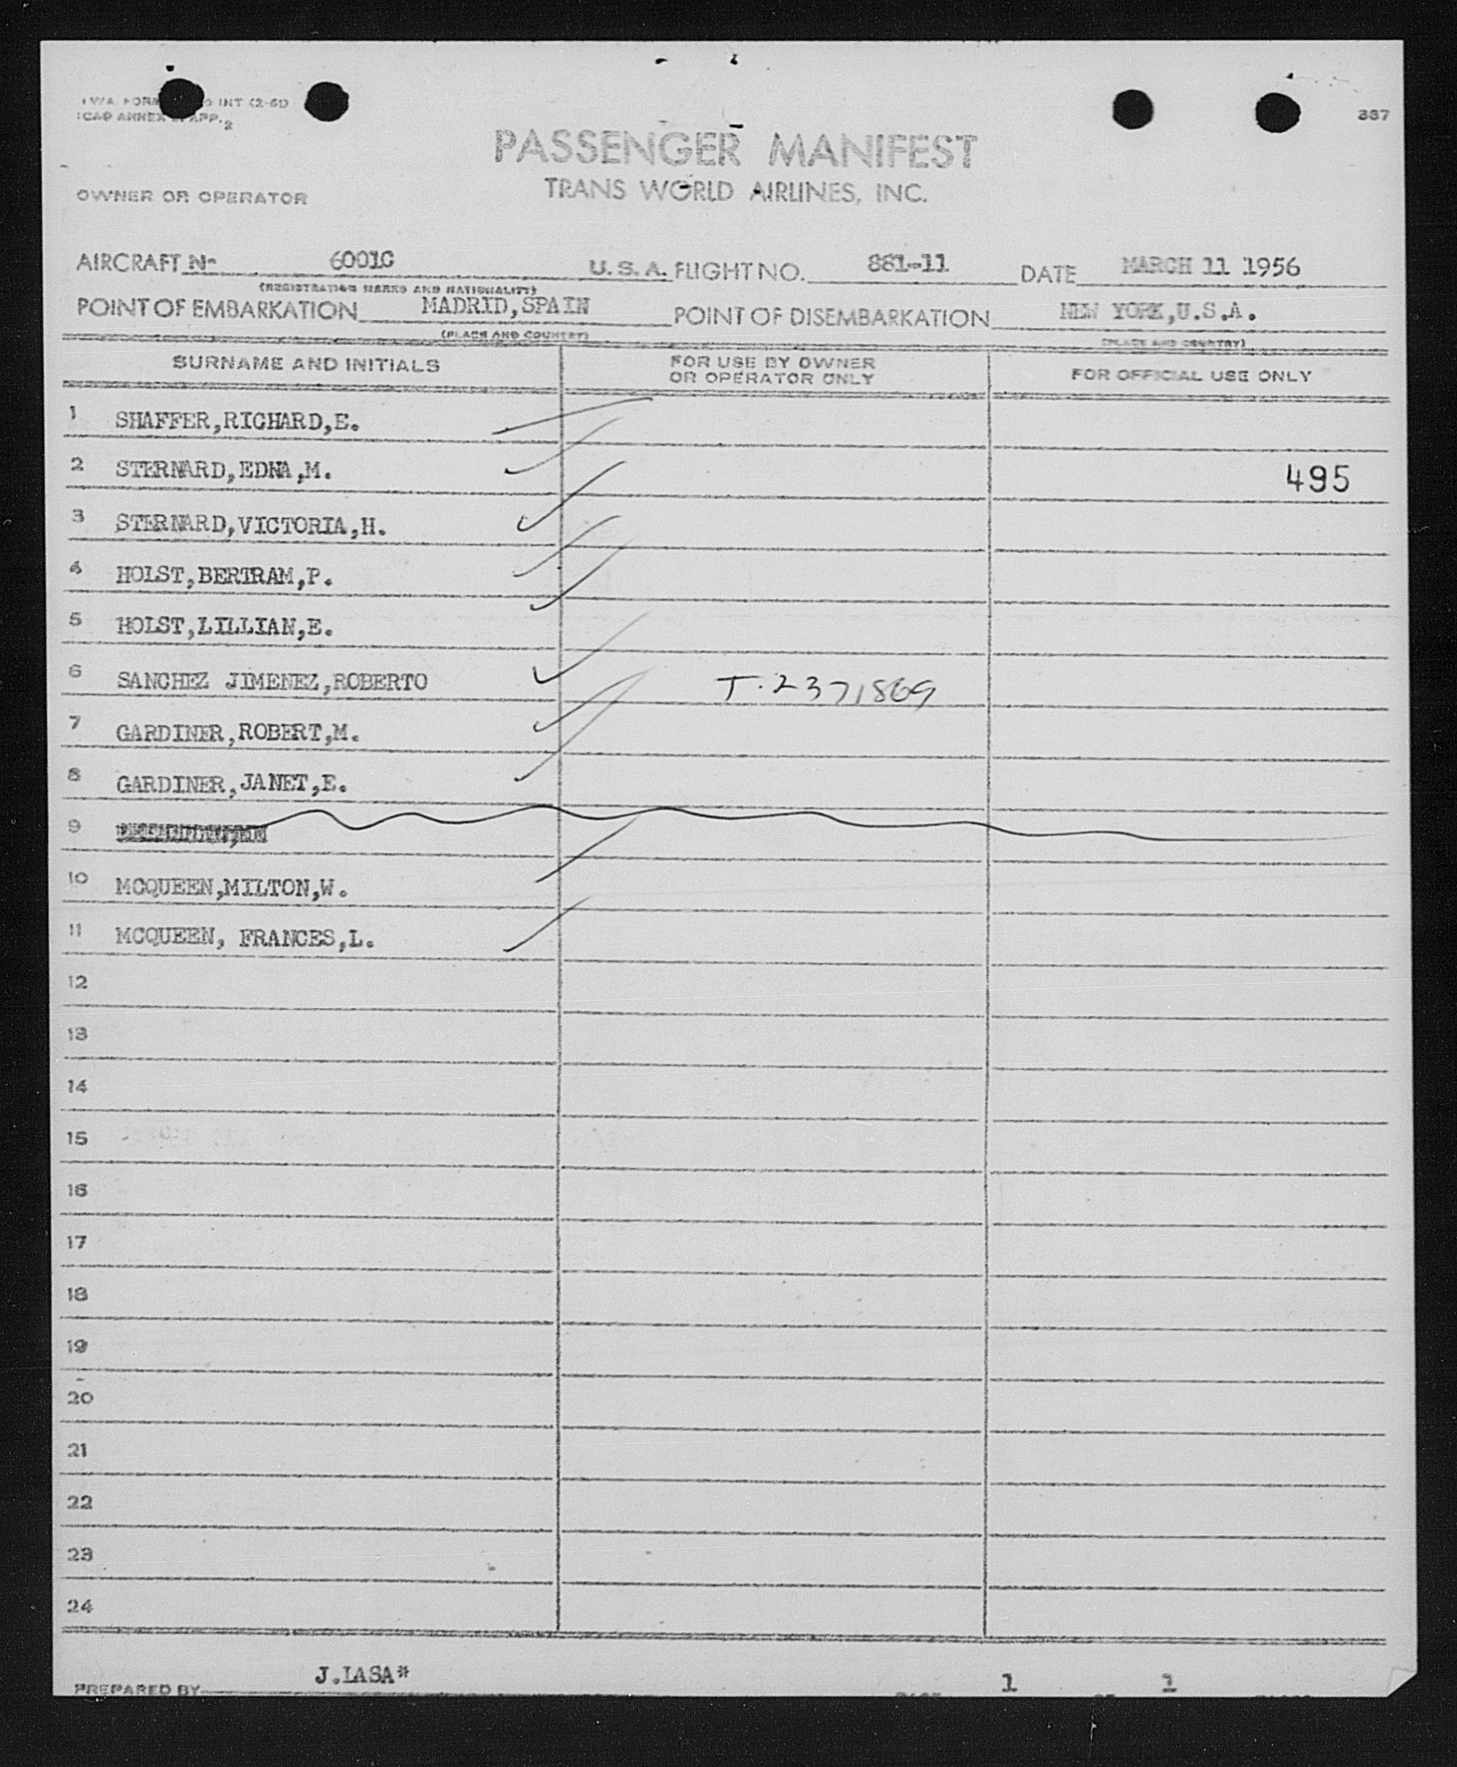 INT (2-51)
ICAO ANNEX APP. 2
337
PASSENGER MANIFEST
TRANS WORLD AIRLINES, INC.
OWNER OR OPERATOR
AIRCRAFT N- 6001C U. S. A. FLIGHT NO. 881-11 DATE MARCH 11 1956
(REGISTRATION MARKS AND NATIONALITY)
POINT OF EMBARKATION MADRID,SPAIN POINT OF DISEMBARKATION NEW YORK,U.S.A.
(PLACE AND COUNTRY) (PLACE AND COUNTRY)
SURNAME AND INITIALS FOR USE BY OWNER OR OPERATOR ONLY FOR OFFICIAL USE ONLY
1 SHAFFER,RICHARD,E.
2 STERNARD,EDNA,M. 495
3 STERNARD,VICTORIA,H.
4 HOLST,BERTRAM,P.
5 HOLST,LILLIAN,E.
6 SANCHEZ JIMENEZ,ROBERTO T.2371869
7 GARDINER,ROBERT,M.
8 GARDINER,JANET,E.
9
10 MCQUEEN,MILTON,W.
11 MCQUEEN, FRANCES,L.
12
13
14
15
16
17
18
19
20
21
22
23
24
PREPARED BY J.LASA* 1 1